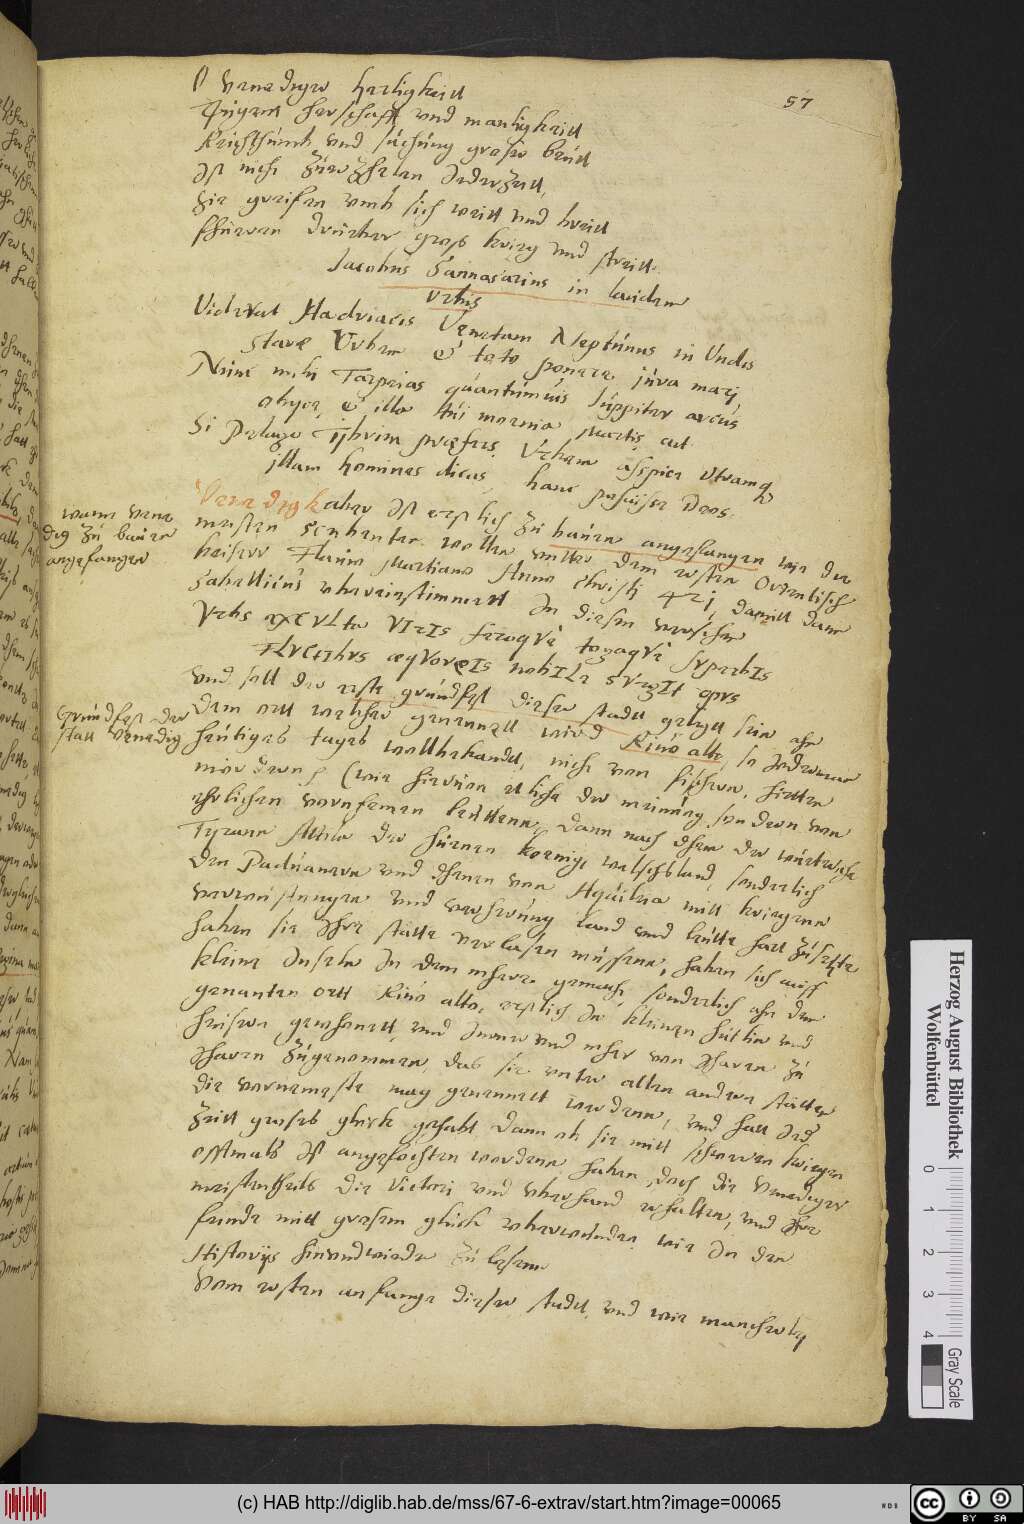 57
O Venediger herligkeit
Tugent herschaft und manligkeitt
Reichthumb und suchung groser beutt
Ist nicht zuerzhelen Jederzeit,
Sie greifen umb sich weitt und breitt
fhueren druber gros krieg und streitt.
Jacobus Sannasarius in laudem
Urbis
Viderat Hadriacis Venetam Neptunus in Undis
stare Urbem et toto ponere jura marj
Nunc mihi Tarpeias quantumvis Juppiter arcus
obijce, et illa tui moenia Martis ait
Si Pelago Tybrim praefers, Urbem aspice utramq
illam homines dicas, hanc posuisse Deos.
wann Vene
dig zu bauen
angefangen
Venedigk aber Ist erstlich zu bauen angefangen wie die
meisten Scribenten wollen unter dem ersten Orientlisch
keiser Flavio Martiano Anno Christi 421, damitt dann
Sabellicus ubereinstimmett In diesen versichen
Urbs exCVLta VIrIs ferroqVe togaqVe sVperbIs
FLVCtIbvs aeqVoreIs nobILe sVrgIt opvs
Grundfest der
statt Venedig
und soll der erste grundfest dieser stadt gelegt sein ahn
dem ortt welcher genennett wird Rivo alto, so Iederman
heutiges tages wollbekandt, nicht von fischern, hirtten
mördern, (wie hievon etliche der meinung sondern von
ehrlichen vornhemen leuttenn, dann nach dhem der wüetriche
Tyrann Attila der hunen koenige welschland, sonderlich
den Paduanern und denen von Aquileia mitt kriegenn
verwüstungen und verherung land und leutte hart zusetzte
haben sie Ihre stätte verlasen müssenn, haben sich auff
kleine Inselen In dem mhere gemacht sonderlich ahn dem
genanten ortt Rivo alto, erstlich In kleinen hutlin und
heusern gewhonett, und Immer und mher von Iharen zu
Iharen zugenommen, das sie unter allen andern stätten
die vornemeste mag genennett werdenn, und hatt Jed
zeitt groses gluck gehabt dann ob sie mitt schweren kriegen
offtmals Ist angefochten wordenn haben doch die Venediger
meistentheils die Victori und uberhand erhalten, und Ihre
feinde mitt grosem glück uberwunden, wie In den
Historijs hinundwieder zu lesenn
Vom ersten anfange dieser stadt, und wie mancherley
Herzog August Bibliothek
Wolfenbüttel
0 1 2 3 4
Gray Scale
(c) HAB http://diglib.hab.de/mss/67-6-extrav/start.htm?image=00065
WDB
cc BY SA